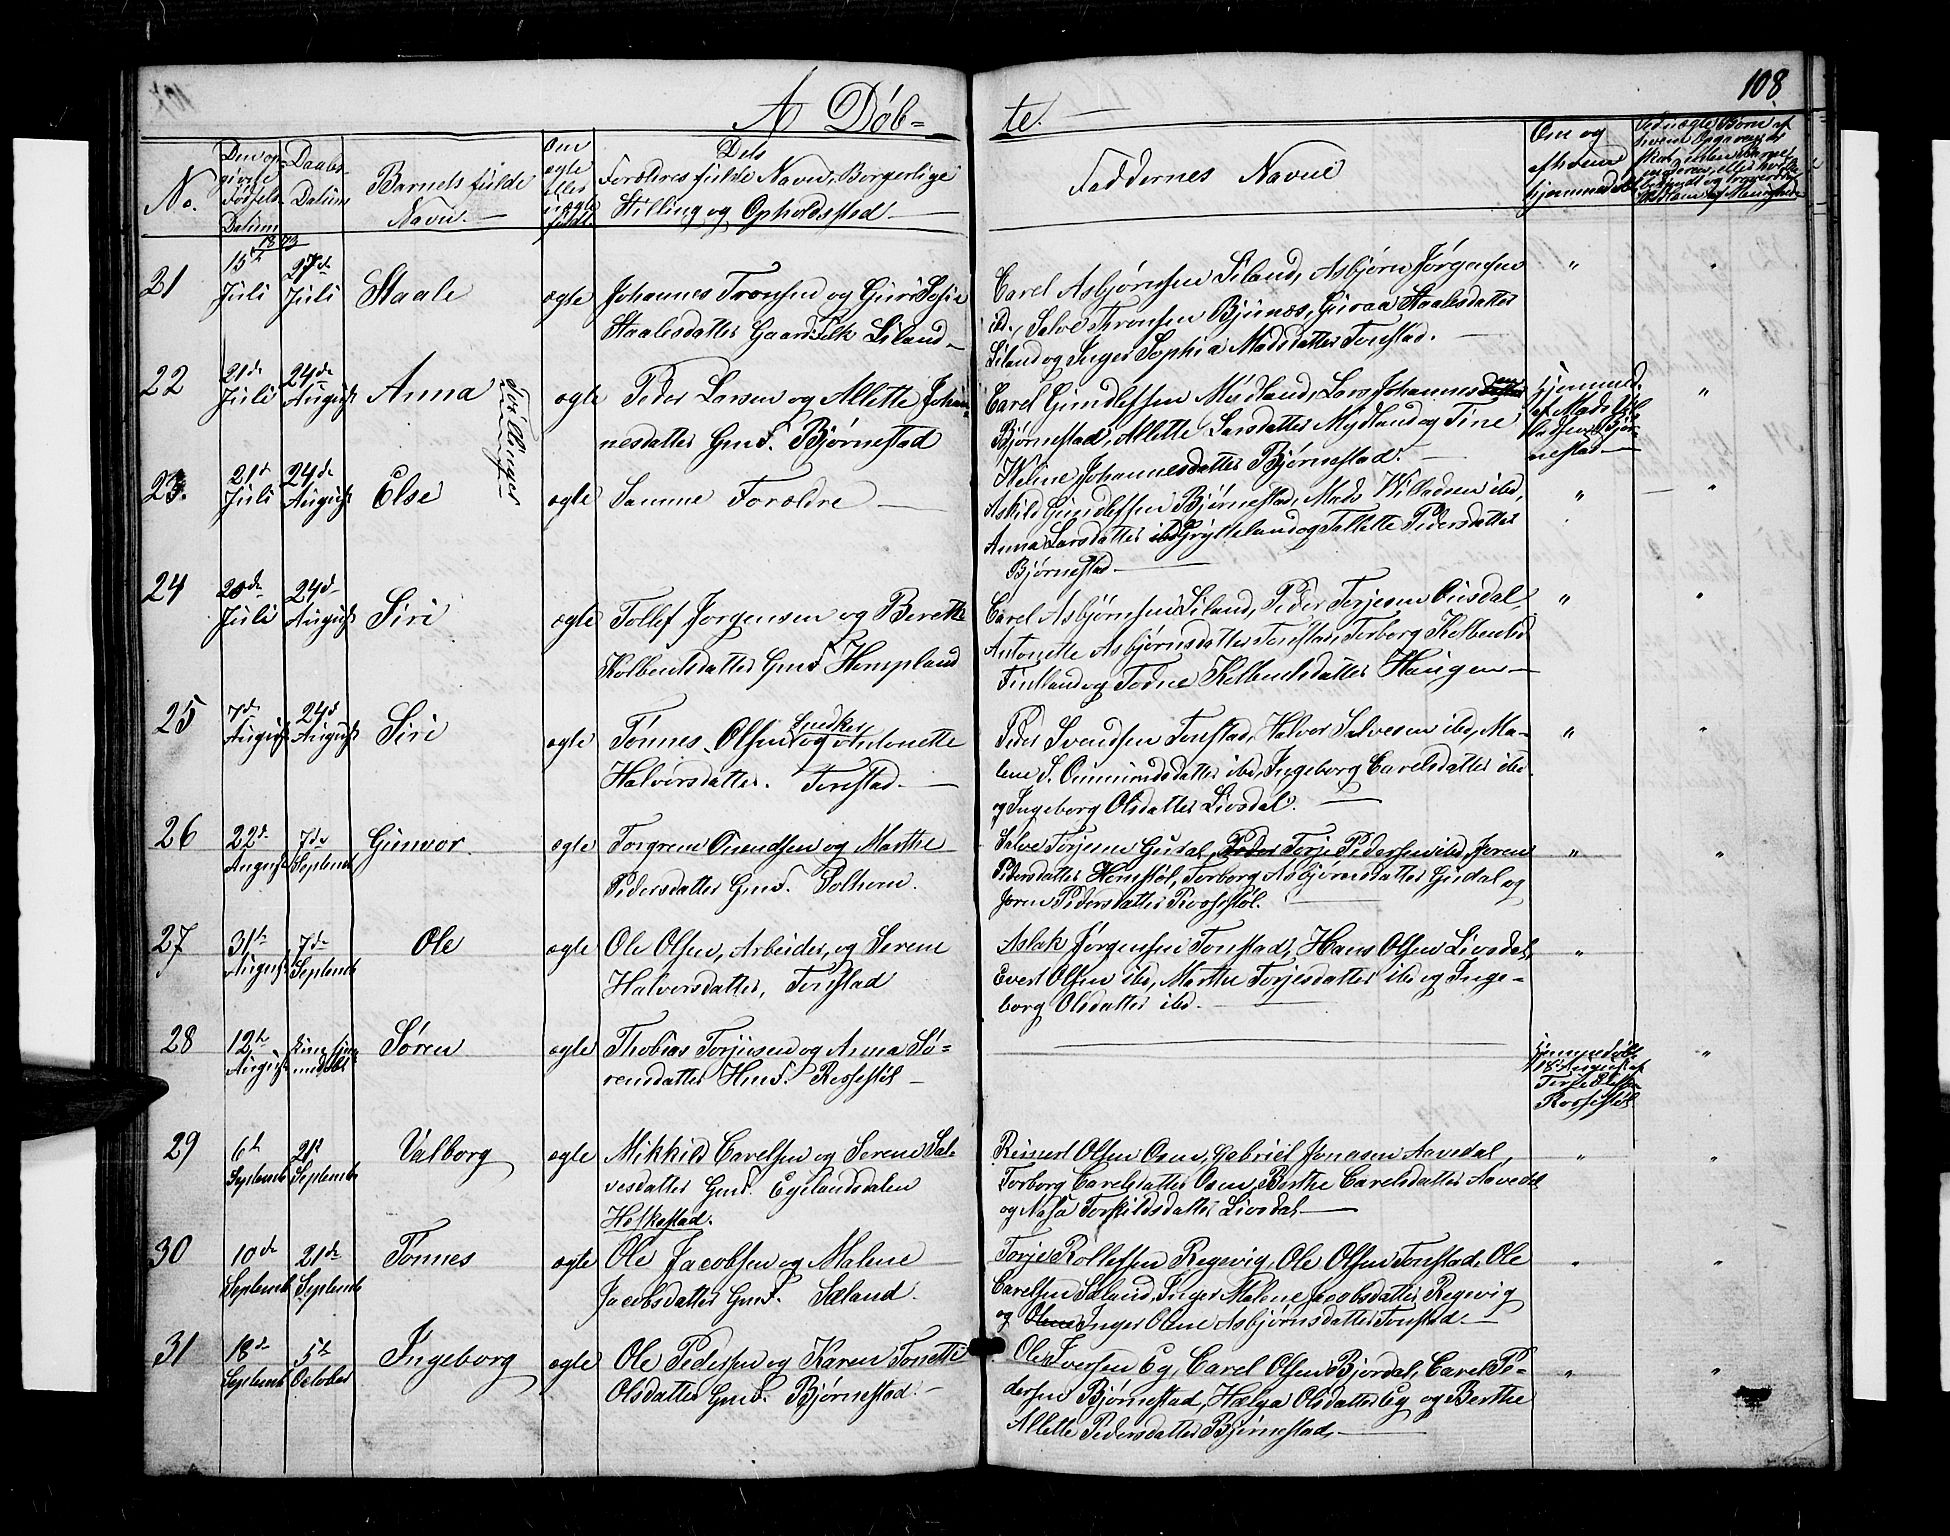 108
A Døb-
te.
No.
Den op-
givne
Fødsels
Datum
Daabs-
Datum
Barnets fulde
Navn.
Om
ægte
eller
uægte
født.
Dets
Forældres fulde Navn, Borgerlige
Stilling og Opholdssted
Faddernes Navne
Om og
af hvem
hjemmedøbt
1873
21
15de
Juli
27de
Juli
Staale
ægte
Johannes Tronsen og Guri Sofie
Staalesdatter Gaard Liland
Carel Asbjørnsen Liland, Asbjørn Jørgensen
ibd., Salve Thronsen Bjunes, Guraa Staalesdatter
Liland og Inger Sophia Madsdatter Tonstad.
"
"
22
21de
Juli
24de
August
Anna
Tvillinger
ægte
Peder Larsen og Allette Johan-
nesdatter Gmf. Bjørnestad
Carel Gundlefsen Mydland, Lars Johannessen
Bjørnestad, Allette Larsdatter Mydland og Tine
Heline Johannesdatter Bjørnestad.
hjemmed.
af Mads Vil-
ladsen Bjør-
nestad
"
23.
21d
Juli
24de
August
Else
ægte
Samme Forældre
Askild Gundlefsen Bjørnestad, Mads Willadsen ibd.,
Anna Larsdatter Grytteland og Tallette Pedersdatter
Bjørnestad
"
"
24
20de
Juli
24d
August
Siri
ægte
Tollef Jørgensen og Berethe
Kolbentsdatter Gmf. Hompland
Carel Asbjørnsen Liland, Peder Terjesen Ousdal,
Antonette Asbjørnsdatter Tonstad, Torborg Kolbentsd
Fintland og Todne Kolbentsdatter Haugen
"
"
25
7de
August
24d
August
Siri
ægte
Tønnes Olsen Snedker og Antonette
Halvorsdatter. Tonstad.
Peder Svendsen Tonstad, Halvor Salvesen ibd, Ma-
lene S. Ommundsdatter ibd, Ingeborg Carelsdatter ibd
og Ingeborg Olsdatter Liosdal.
"
"
26
22d
August
7de
Septemb
Gunvor
ægte
Torgrem Omundsen og Marthe
Pedersdatter Gmf. Solhom.
Salve Torjesen Gusal, Peder Torje Pedersen ibd, Joren
Pedersdatter Homstøl, Torborg Asbjørnsdatter Gudal og
Joren Pedersdatter Rossestøl.
"
"
27
31te
August
7de
Septemb
Ole
ægte
Ole Olsen, Arbeider, og Serene
Halvorsdatter, Tonstad
Aslak Jørgensen Tonstad, Hans Olsen Liosdal,
Evert Olsen ibd, Marthe Torjesdatter ibd og Inge-
borg Olsdatter ibd.
"
28
12te
August
kun hjem
medøbt
Søren
ægte
Thobias Torjusen og Anna Sø-
rensdatter Hmf. Rossestøl
hjemmedøbt
18 August af
Rossestøl
"
29
6te
Septemb
21d
Septemb
Valborg
ægte
Mikkild Carelsen og Serene Sal-
vesdatter Gmf. Egelandsdalen
Helkestad.
Reinert Olsen Osen, Gabriel Jonasen Aavedal,
Torborg Carelsdatter Osen, Berthe Carelsdatter Aavedal
og Aasa Torkildsdatter Liosdal
"
"
30
10de
Septemb
21de
Septemb
Tønnes
ægte
Ole Jacobsen og Malene
Jacobsdatter Gmf. Sæland.
Torje Rollefsen Regevig, Ole Olsen Tonstad, Ole
Carelsen Sæland, Inger Malene Jacobsdatter Regevig
og Olene Inger Olene Asbjørnsdatter Tonstad.
"
"
31
18de
Septemb
5te
October
Ingeborg
ægte
Ole Pedersen og Karen Tonette
Olsdatter Gmf. Bjørnestad.
Ole Iversen Eg, Carel Olsen Bjordal, Carel Pe-
dersen Bjørnestad, Helga Olsdatter Eg og Berthe
Allette Pedersdatter Bjørnestad
"
"